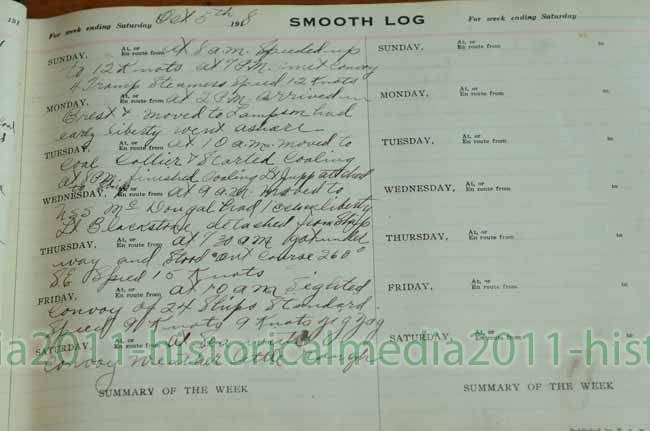 191
For week ending Saturday Oct 5th 1918
SMOOTH LOG
For week ending Saturday 191
SUNDAY, At, or En route from At 8 a.m. Speeded up
to 12 Knots at 7 P.M. met Convoy
4 Tramp Steamers Spied 12 Knots
MONDAY, At, or En route from At 2 P.M. Arrived in
Brest & moved to Lampson had
early liberty went ashore
TUESDAY, At, or En route from At 10 a.m. moved to
Coal Collier & Started Coaling
at 8 P.M. finished Coaling Lt Jupp attched
to Ship
WEDNESDAY, At, or En route from At 9 a.m. moved to
USS Mc Dougal had liberty
Lt Blackstone, detached from Ship
THURSDAY, At, or En route from at 7 30 a.m. got under
way and Stood out Course 260°
SE Spied 15 Knots
FRIDAY, At, or En route from At 10 a.m. Sighted
Convoy of 24 Ships Standard
Spied 9½ Knots 9 Knots Zig Zag
SATURDAY, At, or En route from At Sea
Convoy Weather little rough
SUMMARY OF THE WEEK
SUNDAY, At, or En route from to
MONDAY, At, or En route from to
TUESDAY, At, or En route from to
WEDNESDAY, At, or En route from to
THURSDAY, At, or En route from to
FRIDAY, At, or En route from to
SATURDAY, At, or En route from to
SUMMARY OF THE WEEK
dia2011-historicalmedia2011-hist